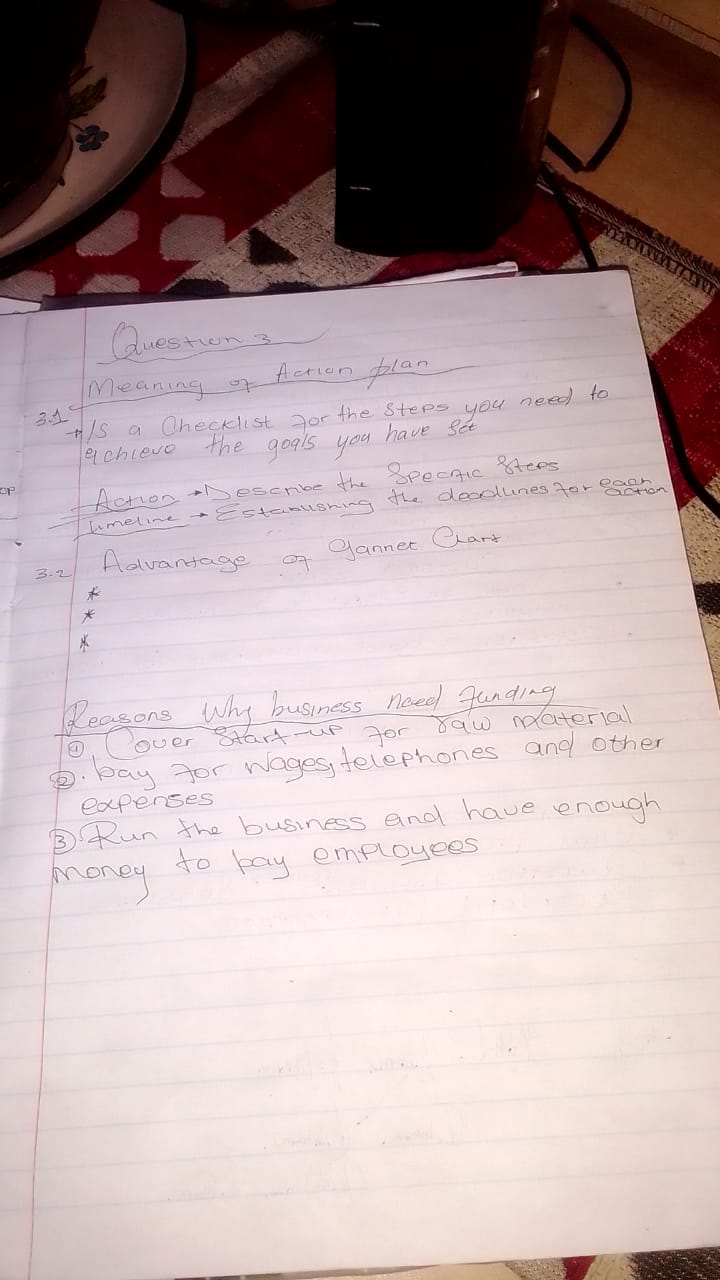 Question 3
Meaning of Action plan
3.1 → Is a Checklist for the steps you need to
achieve the goals you have set
Action → Describe the Specific Steps
timeline → Establishing the deadlines for each
action
3.2 Advantage of Gannet Chart
*
*
*
Reasons Why business need funding
① Cover Start-up for raw material
②. pay for wages, telephones and other
expenses
③ Run the business and have enough
money to pay employees